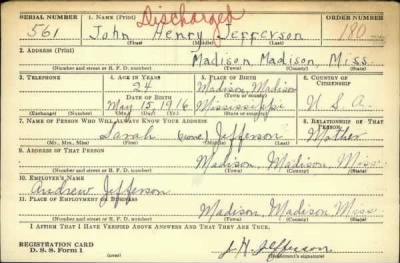 Discharged
SERIAL NUMBER 1. NAME (Print) ORDER NUMBER
561 John Henry Jefferson 180
(First) (Middle) (Last)
2. ADDRESS (Print)
Madison, Madison, Miss.
(Number and street or R. F. D. number) (Town) (County) (State)
3. TELEPHONE 4. AGE IN YEARS 5. PLACE OF BIRTH 6. COUNTRY OF CITIZENSHIP
24 Madison, Madison
DATE OF BIRTH (Town or county)
May 15, 1916 Mississippi U.S.A.
(Exchange) (Number) (Mo.) (Day) (Yr.) (State or country)
7. NAME OF PERSON WHO WILL ALWAYS KNOW YOUR ADDRESS 8. RELATIONSHIP OF THAT PERSON
Sarah (none) Jefferson Mother
(Mr., Mrs., Miss) (First) (Middle) (Last)
9. ADDRESS OF THAT PERSON
Madison, Madison, Miss.
(Number and street or R. F. D. number) (Town) (County) (State)
10. EMPLOYER'S NAME
Andrew Jefferson
11. PLACE OF EMPLOYMENT OR BUSINESS
Madison, Madison Miss
(Number and street or R. F. D. number) (Town) (County) (State)
I AFFIRM THAT I HAVE VERIFIED ABOVE ANSWERS AND THAT THEY ARE TRUE.
REGISTRATION CARD J. H. Jefferson
D. S. S. Form 1 (over) (Registrant's signature)